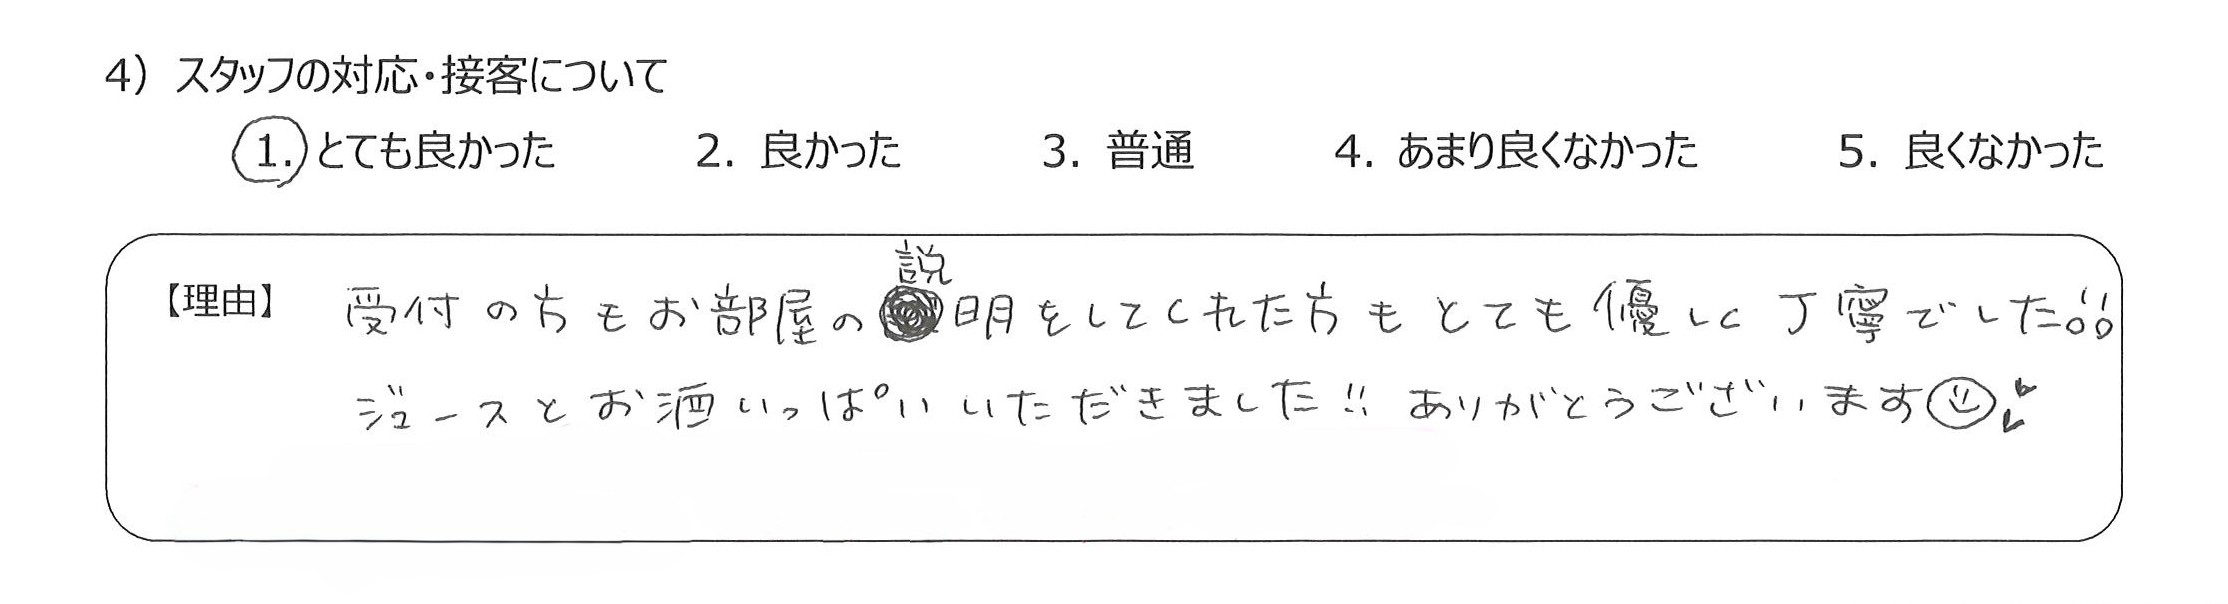 4) スタッフの対応・接客について
1. とても良かった 2. 良かった 3. 普通 4. あまり良くなかった 5. 良くなかった
【理由】 受付の方もお部屋の説明をしてくれた方もとても優しく丁寧でした!!
ジュースとお酒いっぱいいただきました!! ありがとうございます